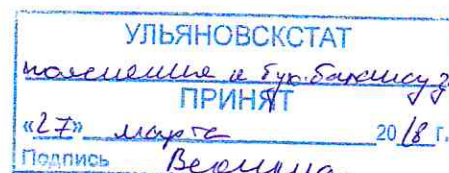 УЛЬЯНОВСКСТАТ
пояснения к бух. балансу
ПРИНЯТ
«27» марта 2018 г.
Подпись